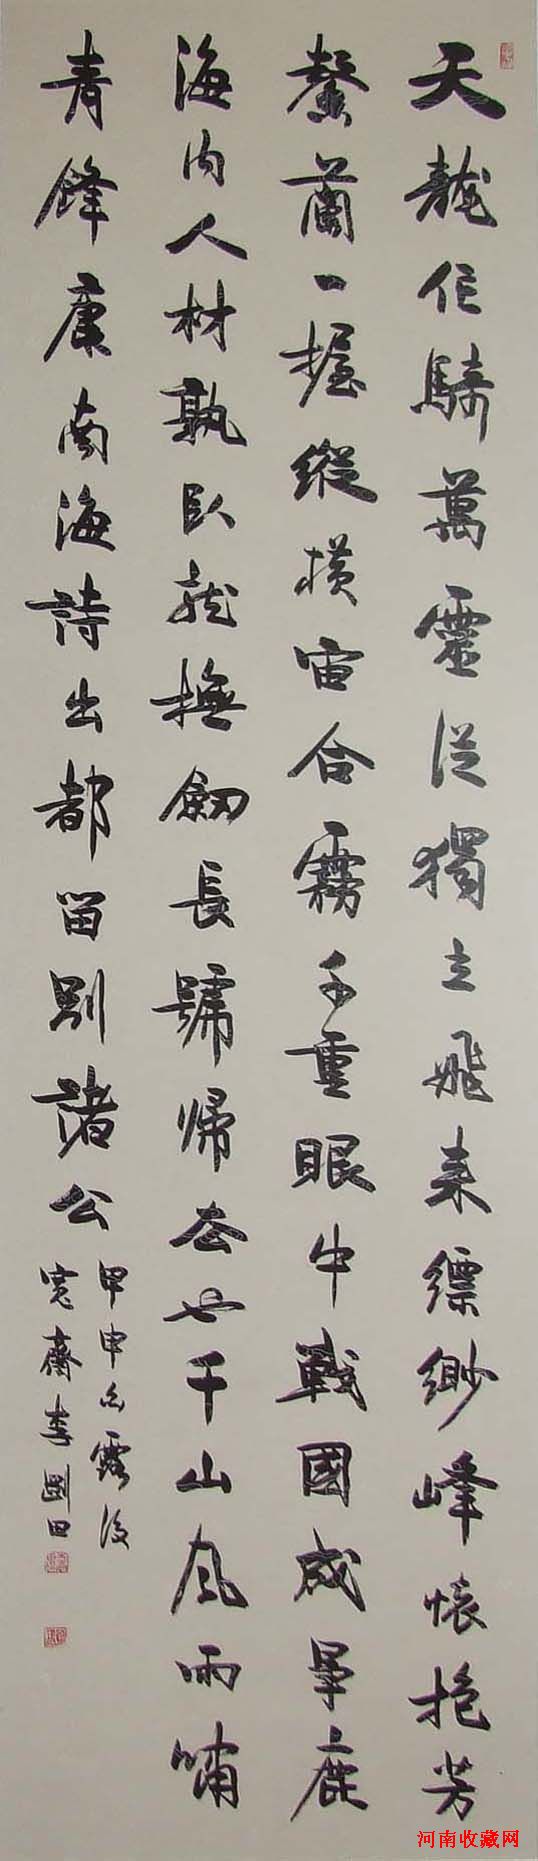 天龍作騎萬靈從獨立飛来縹緲峰懷抱芳
馨蘭一握縱橫宙合霧千重眼中戰國成爭鹿
海内人材孰臥龍撫劍長號歸去也千山風雨嘯
青鋒康南海詩出都留别諸公
甲申白露後
寬齋李剛田
河南收藏网